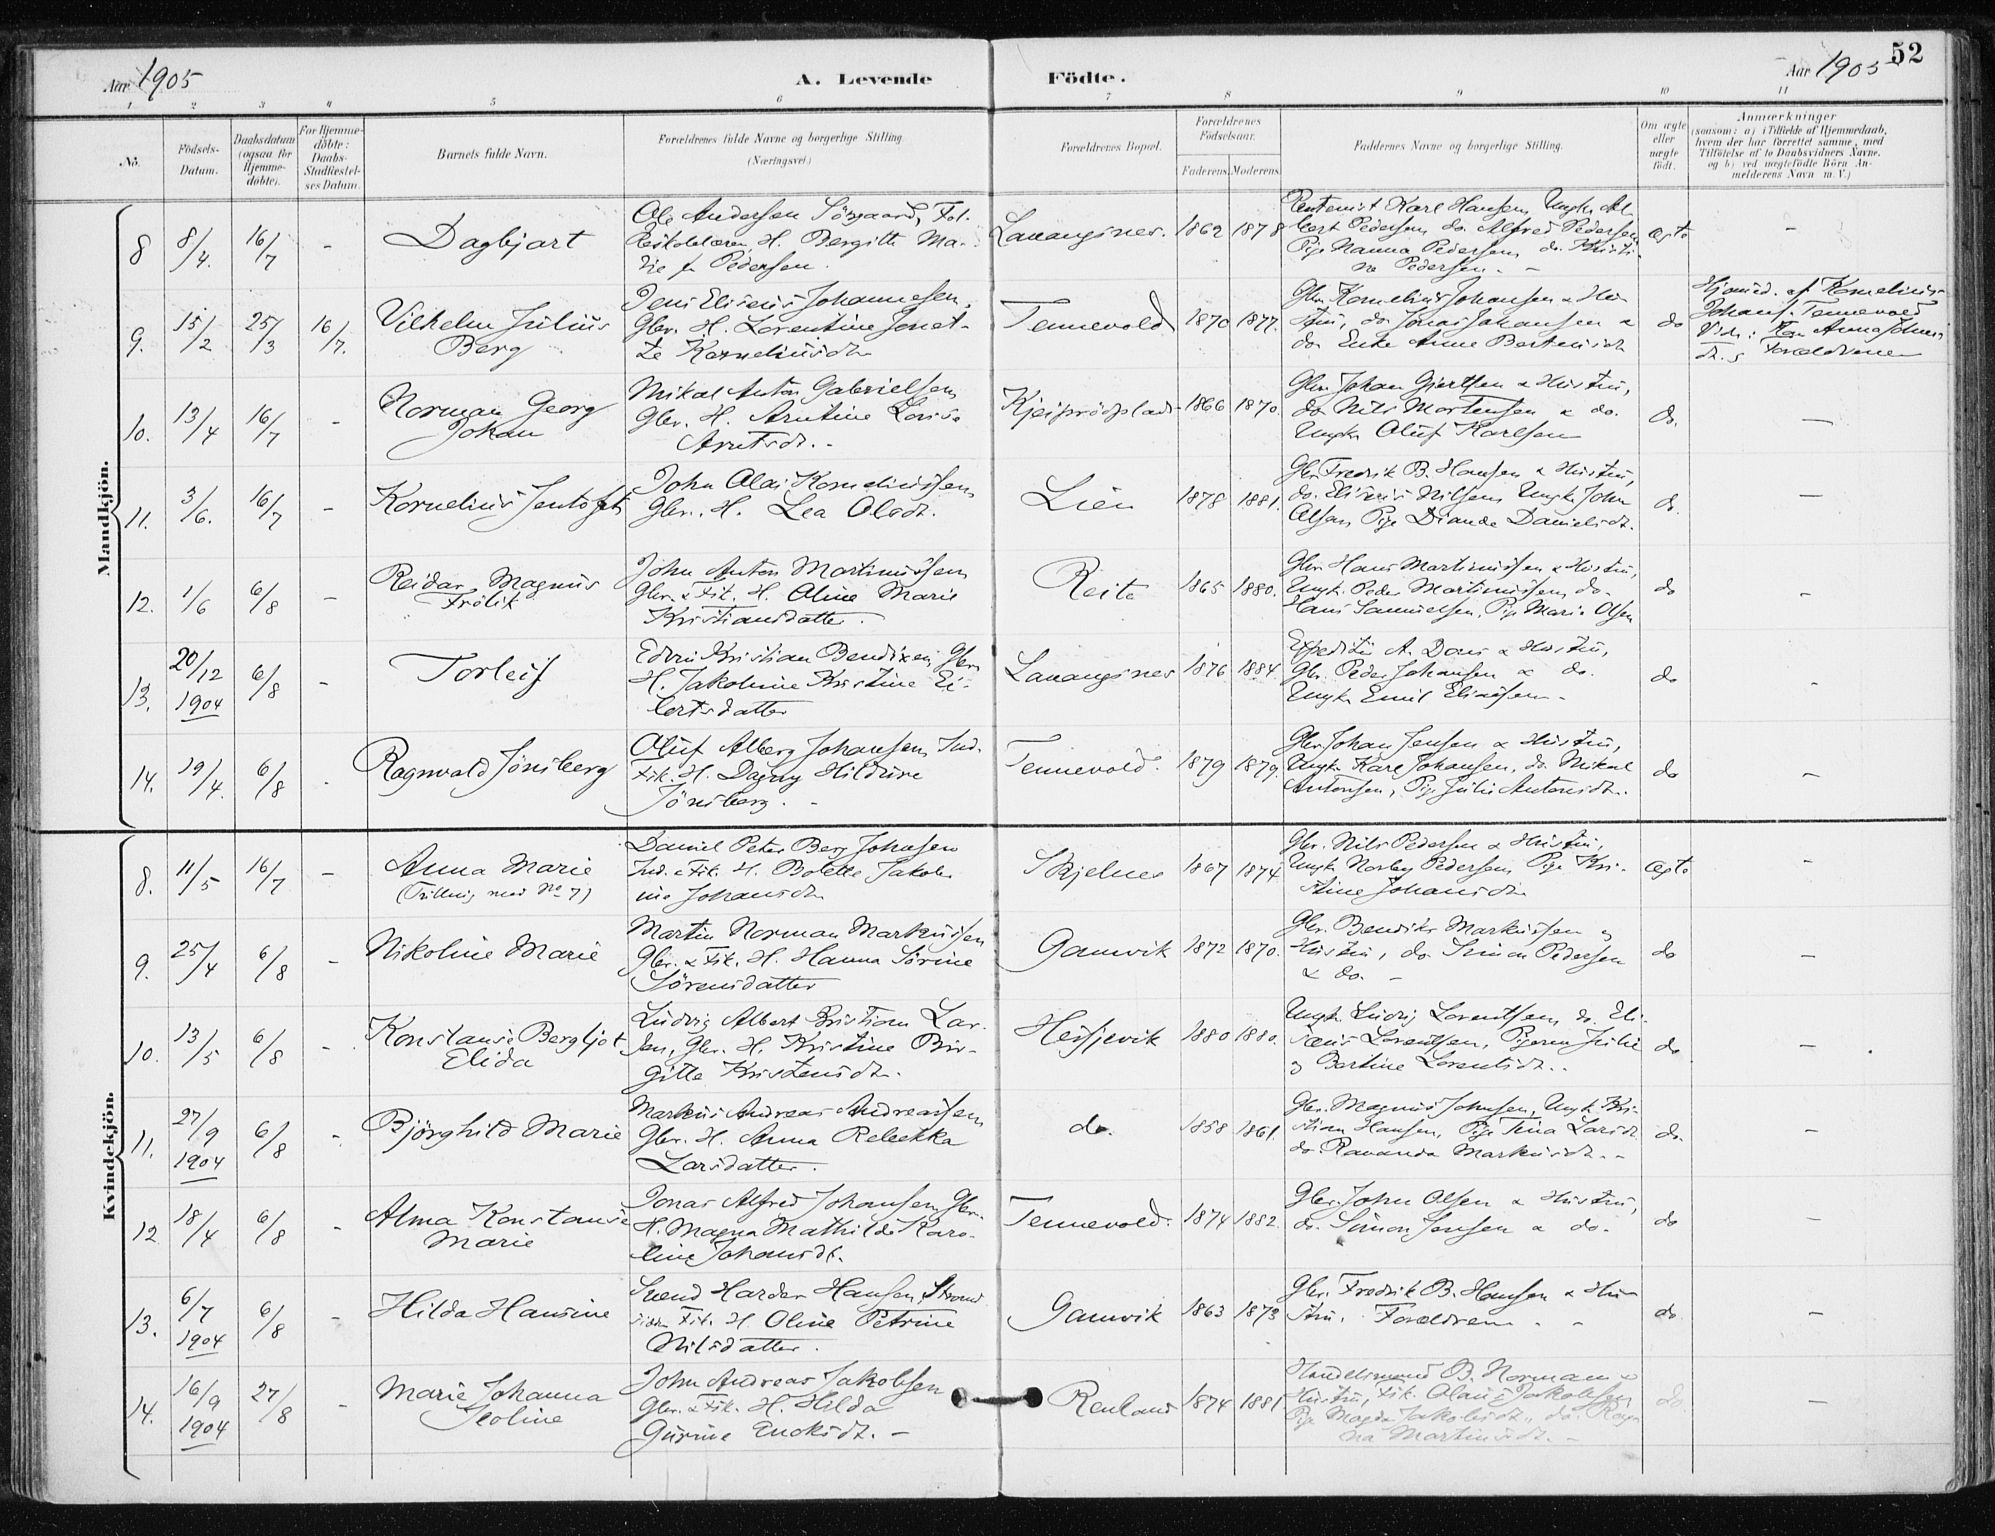 Aar 1905
A. Levende
Födte.
Aar 1905
52
1 2 3 4 5 6 7 8 9 10 11
No.
Födsels-
Datum.
Daabsdatum
(ogsaa for
Hjemme-
döbte).
For Hjemme-
döbte:
Daabs-
Stadfæstel-
ses Datum.
Barnets fulde Navn.
Forældrenes fulde Navne og borgerlige Stilling
(Næringsvei)
Forældrenes Bopæl.
Forældrenes
Födselsaar.
Faderens. Moderens.
Faddernes Navne og borgerlige Stilling.
Om ægte
eller
uægte
födt.
Anmærkninger
(saasom: a) i Tilfælde af Hjemmedaab,
hvem der har forrettet samme, med
Tilföielse af to Daabsvidners Navne.
og b) ved uægtefödte Börn An-
melderens Navn m. V.)
Mandkjön.
8 8/4. 16/7 -
Dagbjart
Ole Andersen Sörgaard,
H. Bergitte Ma-
rie f. Pedersen.
Lavangsnes. 1862 1878
Karl Hansen, Ungk. Al-
bert Pedersen, do. Alfred Pedersen
Pige Nanna Pedersen, do. Kristi-
ne Pedersen. -
ægte -
9. 15/2 25/3 16/7.
Vilhelm Julius
Berg
Jens Eliseus Johannesen,
Gbr. H. Lorentine Jonet-
te Korneliusdtr
Tennevold 1870 1877.
Gbr. Kornelius Johansen & Hu-
stru, do. Jonas Johansen &
do Enke Anne Bertheusdtr
do
Hjemd. af Kornelius
Johans. Tennevold
Vidn: Anna Johns
dtr. & Forældrene
10. 13/4 16/7 -
Norman Georg
Johan
Mikal Anton Gabrielsen
Gbr. H. Arntine Lovise
Arntsdtr. -
1866 1870.
Gbr. Johan Gjertsen & Hustru,
do Nils Mortensen & do.
Ungk. Oluf Karlsen
do. -
11. 3/6. 16/7 -
Kornelius Jentoft
John Olai Korneliussen
Gbr. H. Lea Olsdtr.
Lien 1878 1881.
Gbr. Fredrik B. Hansen & Hustru,
do. Eliseus Nilsen, Ungk. John
Olsen, Pige Diande Danielsdtr.
do. -
12. 1/6 6/8 -
Reidar Magnus
Frölik
John Anton Martinussen
Gbr. & Fisk. H. Oline Marie
Kristiansdatter.
Reite 1865 1880.
Gbr. Hans Martinussen & Hustru,
Ungk. Peder Martinussen, do.
Hans Samuelsen, Pige Marie Olsen
do -
13. 20/12 1904 6/8 -
Torleif
Edvin Kristian Bendixen, Gbr.
H. Jakobine Kristine Ei-
lertsdatter
Lavangsnes 1876 1884.
A. Dons & Hustru,
Gbr. Peder Johansen & do.
Ungk. Emil Eliasen. -
do -
14. 19/4. 6/8 -
Ragnvald Jönsberg
Oluf Alberg Johansen, Ind.
Fisk. H. Dagny Hildine
Jönsberg. -
Tennevold. 1879 1879.
Gbr. Johan Jensen & Hustru,
Ungk. Karl Johansen, do. Mikal
Antonsen, Pige Julie Antonsdtr.
do -
Kvindekjön.
8. 11/5 16/7 -
Anna Marie
(Trilling med No 7)
Daniel Peter Berg Johnsen
Ind. & Fisk. H. Bolette Jakob-
ine Johansdtr
Skjelnes 1867 1874
Gbr. Nils Pedersen & Hustru,
Ungk. Norley Pedersen, Pige Kri-
stine Johansdtr
ægte -
9. 25/4 6/8 -
Nikoline Marie
Martin Norman Markussen
Gbr. & Fisk. H. Hanna Sörine
Sörensdatter
Gamvik 1872 1870.
Gbr. Bendiks Markussen &
Hustru, do. Simon Pedersen
& do. -
do -
10. 13/5 6/8 -
Konstanse Bergljot
Elida
Ludvig Albert Kristian Lar-
sen, Gbr. H. Kristine Bir-
gitte Kristensdtr.
1880 1880.
Ungk. Ludvig Lorentsen, do. Eli-
sæus Lorentsen, Pigerne Julie
& Bertine Lorentsdtr..
do -
11. 27/9 1904 6/8 -
Björghild Marie
Markus Andreas Andreassen
Gbr. H. Anna Rebekka
Larsdatter.
do. 1858 1861.
Gbr. Magnus Johnsen, Ungk. Kri-
stian Hansen, Pige Tina Larsdtr
do. Ravanda Markusdtr. -
do. -
12 18/4 6/8 -
Alma Konstanse
Marie
Jonas Alfred Johansen, Gbr.
H. Magna Mathilde Karo-
line Johansdt.
Tennevold. 1874 1882.
Gbr. John Olsen & Hustru,
do. Simon Jensen & do.
do -
13. 6/7 1904 6/8 -
Hilda Hansine
Svend Harder Hansen, Strand-
sidder Fisk. H Oline Petrine
Nilsdatter.
Gamvik 1863 1873
Gbr. Fredrik B. Hansen & Hu-
stru. Forældrene. -
do -
14. 16/9 1904 27/8 -
Marie Johanna
John Andreas Jakobsen
Gbr. & Fisk. H. Hilda
Gurine Enoksdt. -
Renland 1874 1881
Handelsmand B. Norman &
Hustru, Fisk. Olaus Jakobsen,
Pige Magda Jakobsdtr., do. Ragn
na Martinsdt. -
do. -